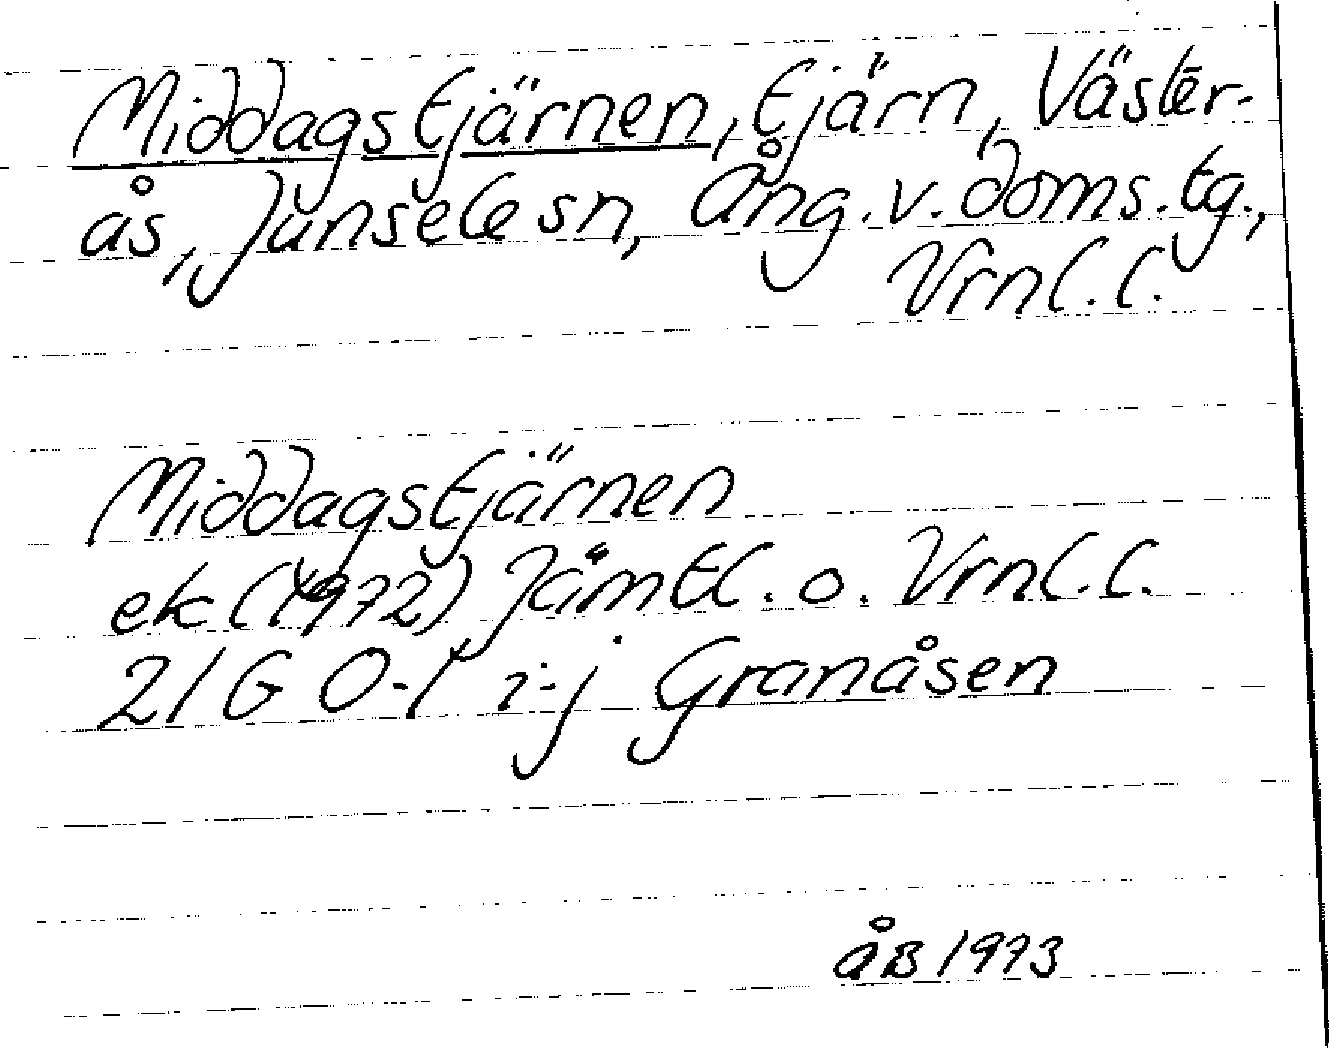 Middagstjärnen, tjärn, Väster-
ås, Junsele sn, Ång. v. doms. tg.,
Vrnl. l.
Middagstjärnen
ek (1972) Jämtl. o. Vrnl. l.
21 G 0-1 i-j Granåsen
åB 1973